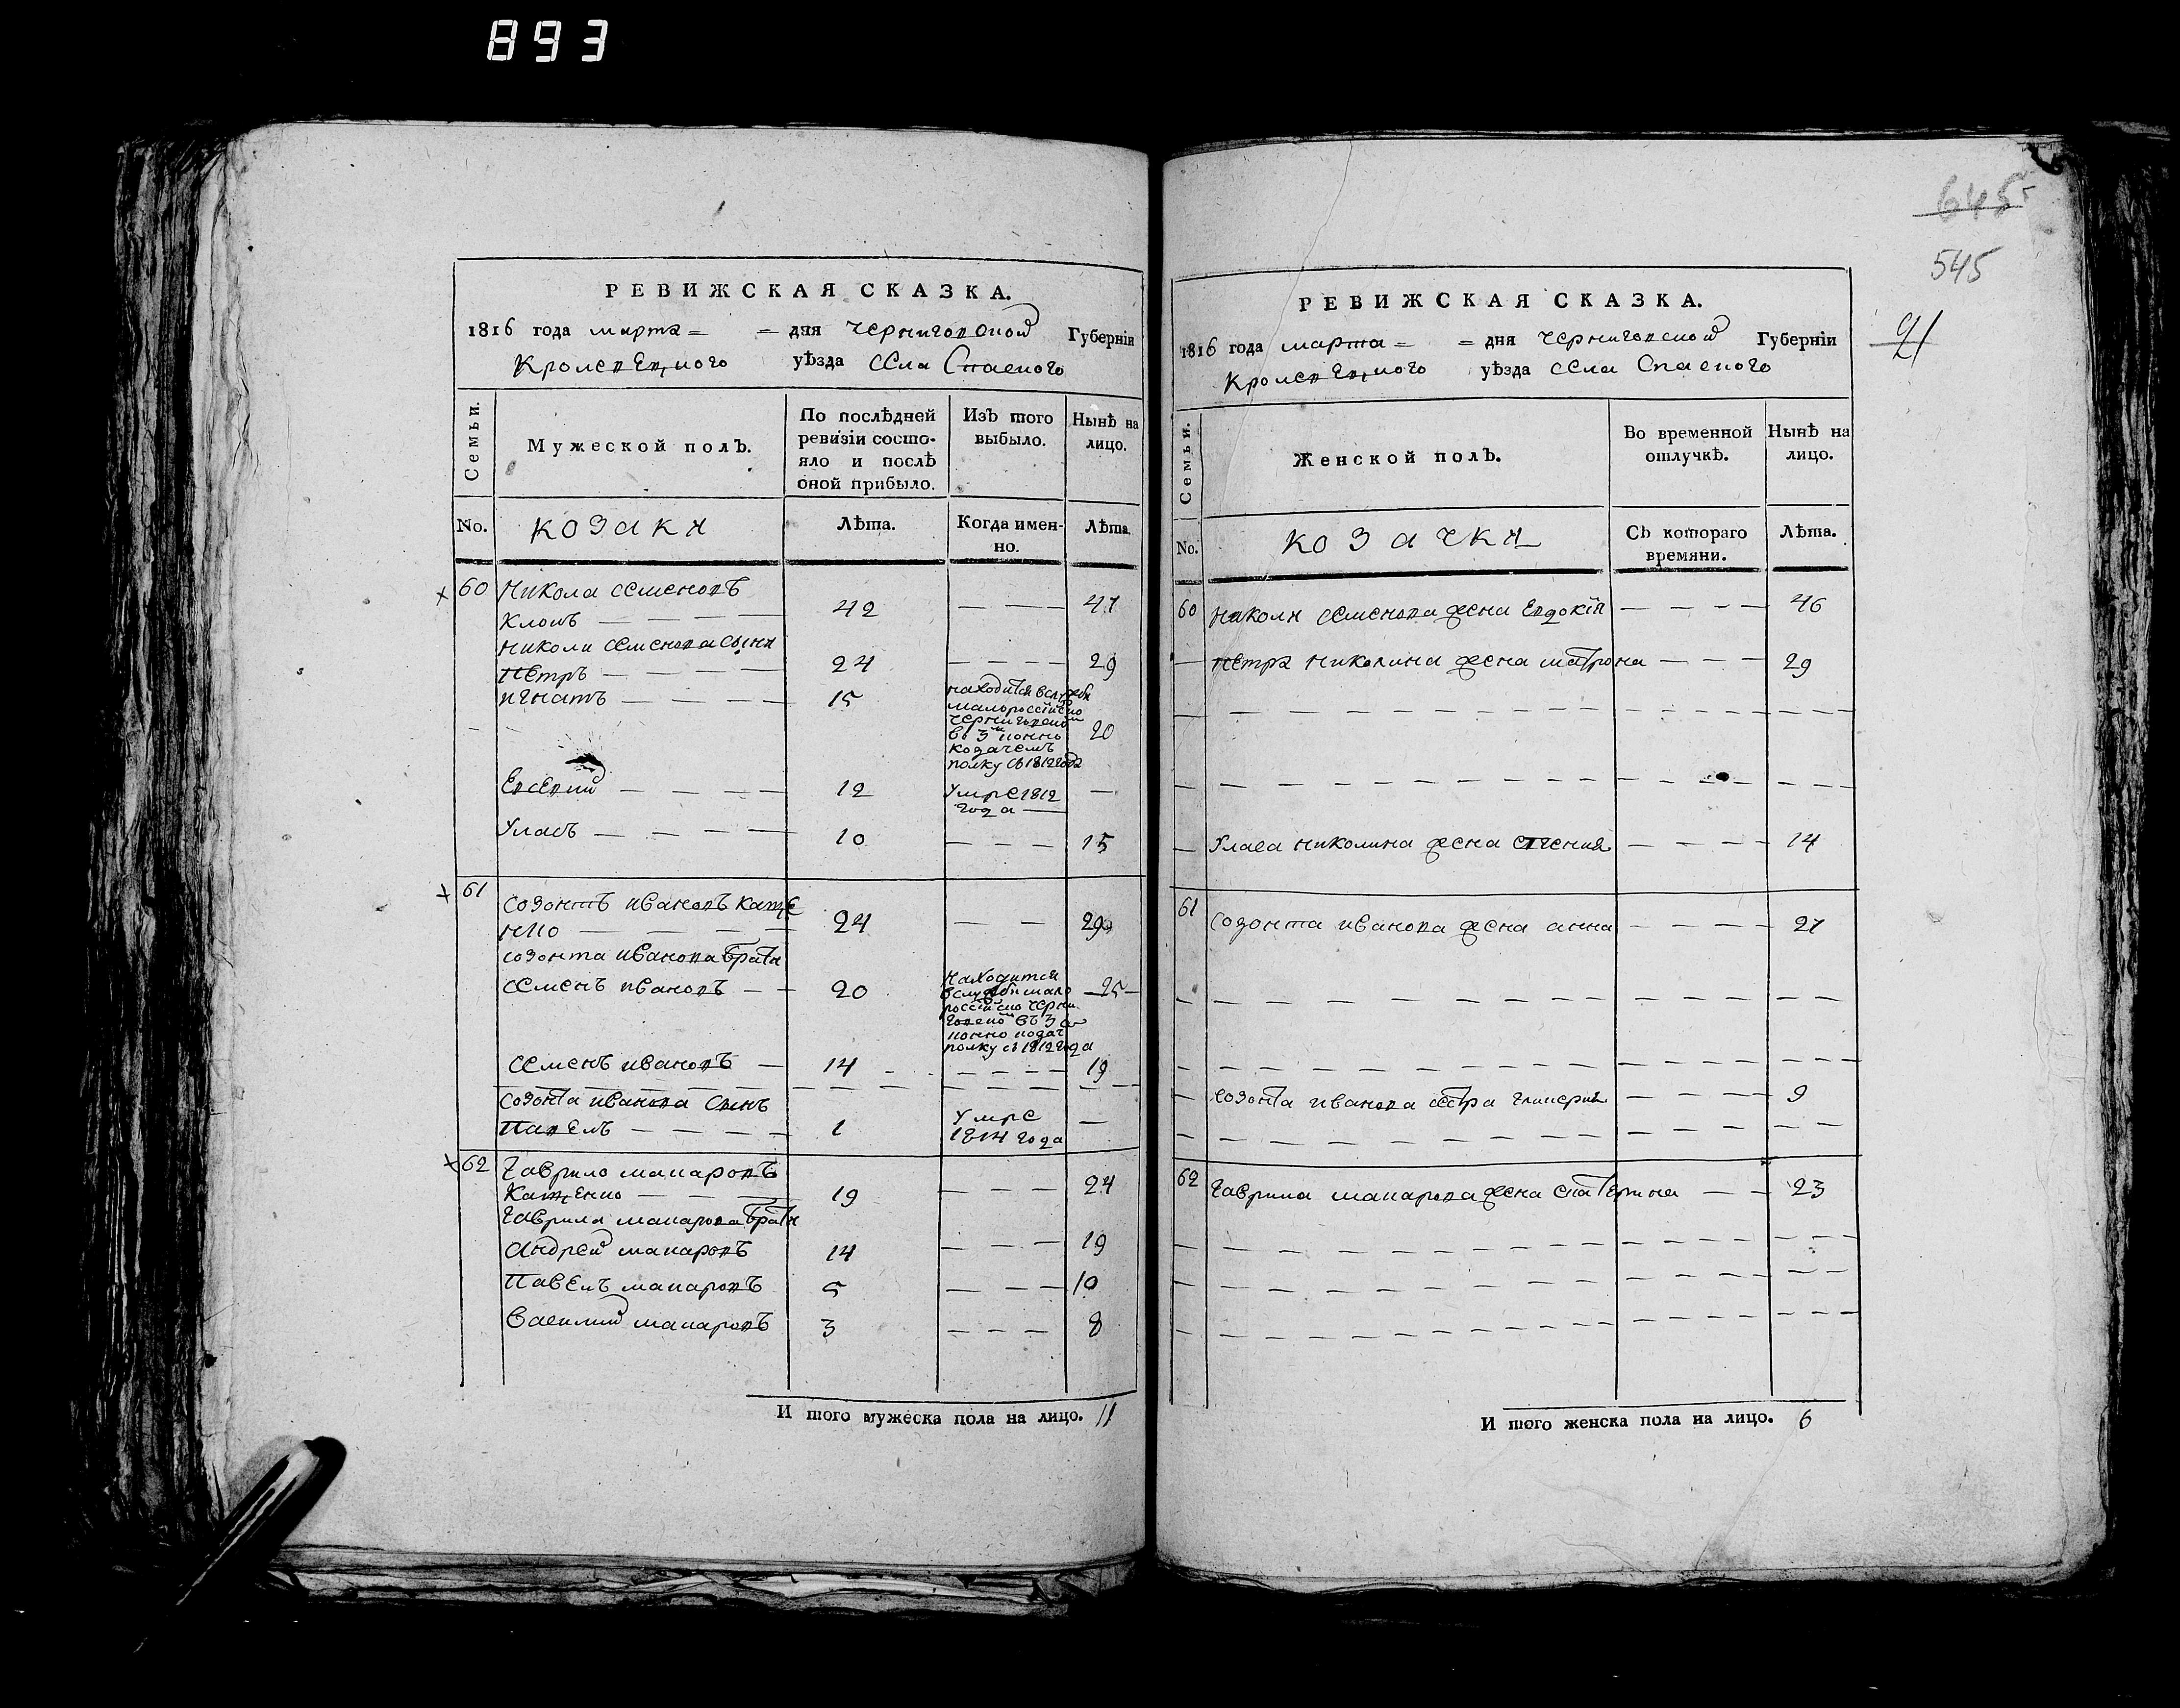 893
645
545
РЕВИЖСКАЯ СКАЗКА.
1816 года марта = = дня Черниговской Губерніи
Кролевецкого уѣзда села Спаского
Семьи.
Мужеской полъ.
По послѣдней ревизіи состо-
яло и послѣ
оной прибыло.
Изъ того
выбыло.
Нынѣ на
лицо.
No.
козаки
Лѣта.
Когда имен-
но.
Лѣта.
60 Никола Семеновъ
Клошъ — — — — 42 — — — 47
Николи Семенова сыни
Петръ — — — — 24 — — — — 29
Игнатъ — — — — 15 находится вслужби
малоросійско
Черниговском
во 3м конно
козачемъ
полку съ 1812 года 20
Евсевий — — — — 12 Умре 1812
года — —
Уласъ — — — — 10 — — — 15
61 Созонтъ Ивановъ Каще
нко — — — — 24 — — 29
Созонта Иванова брати
Семенъ Ивановъ — — 20 Находится
вслужби мало
россійско Черни
говско въ 3м
конно козач
полку съ 1812 года 25
Семенъ Ивановъ — 14 — — — — 19
Созонта Иванова сынъ
Павелъ — — — — 1 Умре
1814 года —
62 Гаврило Макаровъ
Кащенко — — — 19 — — — 24
Гаврила Макарова брати
Андрей Макаровъ 14 — — — 19
Павелъ Макаровъ 5 — — — 10
Василий Макаровъ 3 — — — 8
И того мужеска пола на лицо. 11
РЕВИЖСКАЯ СКАЗКА.
1816 года марта = = дня Черниговской Губерніи
Кролевецкого уѣзда села Спаского
Семьи.
Женской полъ.
Во временной
отлучкѣ.
Нынѣ на
лицо.
No.
козачки
Съ котораго
времяни.
Лѣта.
60 Николи Семенова жена Евдокія — — — — 46
— Петра Николина жена Матрона — — — 29
— Уласа Николина жена — — — — 14
61 Созонта Иванова жена Анна — — — — 27
— Созонта Иванова сестра Гликерия — — — — 9
62 Гаврила Макарова жена Екатерина — — 23
И того женска пола на лицо. 6